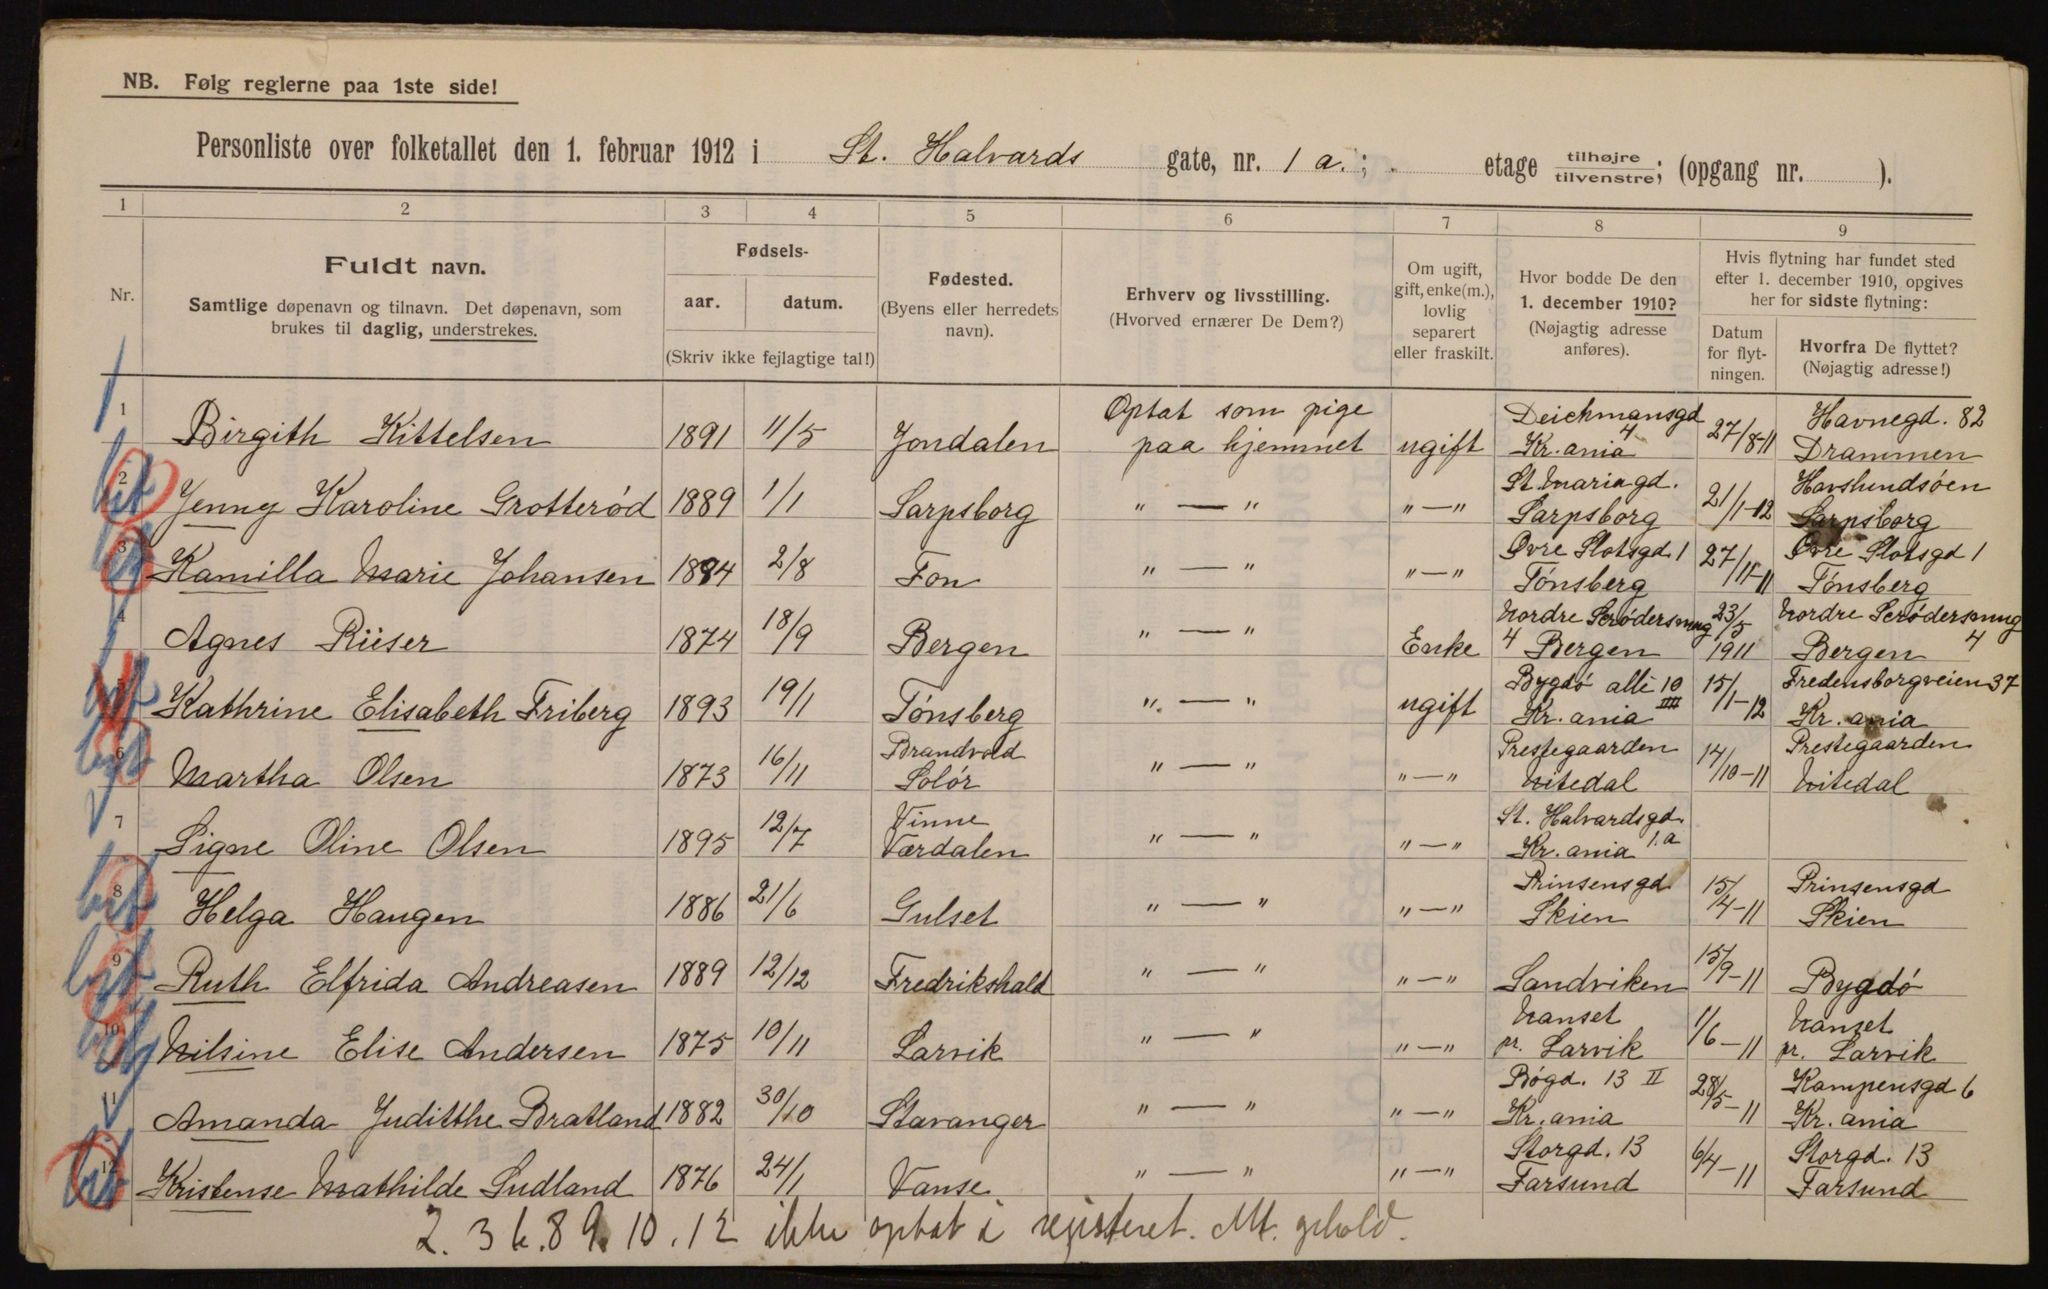 NB. Følg reglerne paa 1ste side!
Personliste over folketallet den 1. februar 1912 i St. Halvards gate, nr. 1 a. ; . etage tilhøjre/tilvenstre; (opgang nr. ).
1 2 3 4 5 6 7 8 9
Nr.
Fuldt navn.
Samtlige døpenavn og tilnavn. Det døpenavn, som
brukes til daglig, understrekes.
Fødsels-
aar. datum.
(Skriv ikke fejlagtige tal!)
Fødested.
(Byens eller herredets
navn).
Erhverv og livsstilling.
(Hvorved ernærer De Dem?)
Om ugift,
gift, enke(m.),
lovlig
separert
eller fraskilt.
Hvor bodde De den
1. december 1910?
(Nøjagtig adresse
anføres).
Hvis flytning har fundet sted
efter 1. december 1910, opgives
her for sidste flytning:
Datum
for flyt-
ningen.
Hvorfra De flyttet?
(Nøjagtig adresse!)
1 Birgith Kittelsen 1891 11/5 Jondalen Optat som pige paa hjemmet ugift Deichmansgd 4 Kr.ania 27/8-11 Havnegd. 82 Drammen
2 Jenny Karoline Grotterød 1889 1/1 Sarpsborg " — " " — " St. Mariagd. Sarpsborg 21/1-12 Havslundsøen Sarpsborg
3 Kamilla Marie Johansen 1894 2/8 Fon " — " " — " Øvre Slotsgd 1 Tönsberg 27/11-11 Øvre Slotsgd 1 Tönsberg
4 Agnes Rüser 1874 18/9 Bergen " — " Enke Nordre Scrödersmug 4 Bergen 23/5 1911 Nordre Scrödersmug 4 Bergen
Kathrine Elisabeth Friberg 1893 19/1 Tönsberg " — " ugift Bygdö allé 10 IIII Kr.ania 15/1-12 Fredensborgveien 37 Kr.ania
6 Martha Olsen 1873 16/11 Brandvold Solör " — " " — " Prestegaarden Nitedal 14/10-11 Prestegaarden Nitedal
7 Signe Oline Olsen 1895 12/7 Vinne Værdalen " — " " — " St. Halvardsgd. 1.a Kr.ania
8 Helga Haugen 1886 21/6 Gulset " — " " — " Prinsensgd. Skien 15/4-11 Prinsensgd Skien
9 Ruth Elfrida Andreasen 1889 12/12 Fredrikshald " — " " — " Sandviken 15/9-11 Bygdö
10 Nilsine Elise Andersen 1875 10/11 Larvik " — " " — " Nanset pr. Larvik 1/6-11 Nanset pr. Larvik
11 Amanda Juditthe Bratland 1882 30/10 Stavanger " — " " — " Bögd. 13 II Kr.ania 28/5-11 Kampensgd 6 Kr.ania
12 Kristense Mathilde Sudland 1876 24/1 Vanse " — " " — " Storgd. 13 Farsund 6/4-11 Storgd. 13 Farsund
2. 3 6. 8 9. 10. 12 ikke optat i registeret.